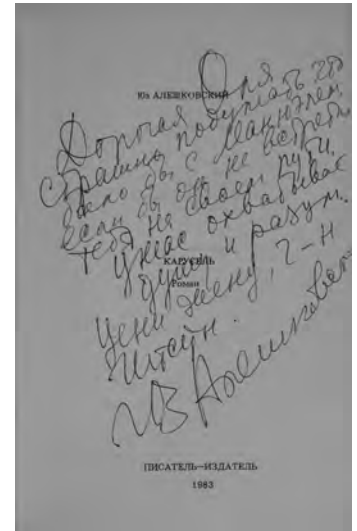 Юз АЛЕШКОВСКИЙ
Дорогая Оля
страшно подумать что
было бы с Мануэлем
если бы он не встретил
тебя на своем пути.
Ужас охватывает
душу и разум.
КАРУСЕЛЬ
Роман
Цени жену, г-н
Штейн.
Юз Алешковский
ПИСАТЕЛЬ—ИЗДАТЕЛЬ
1983